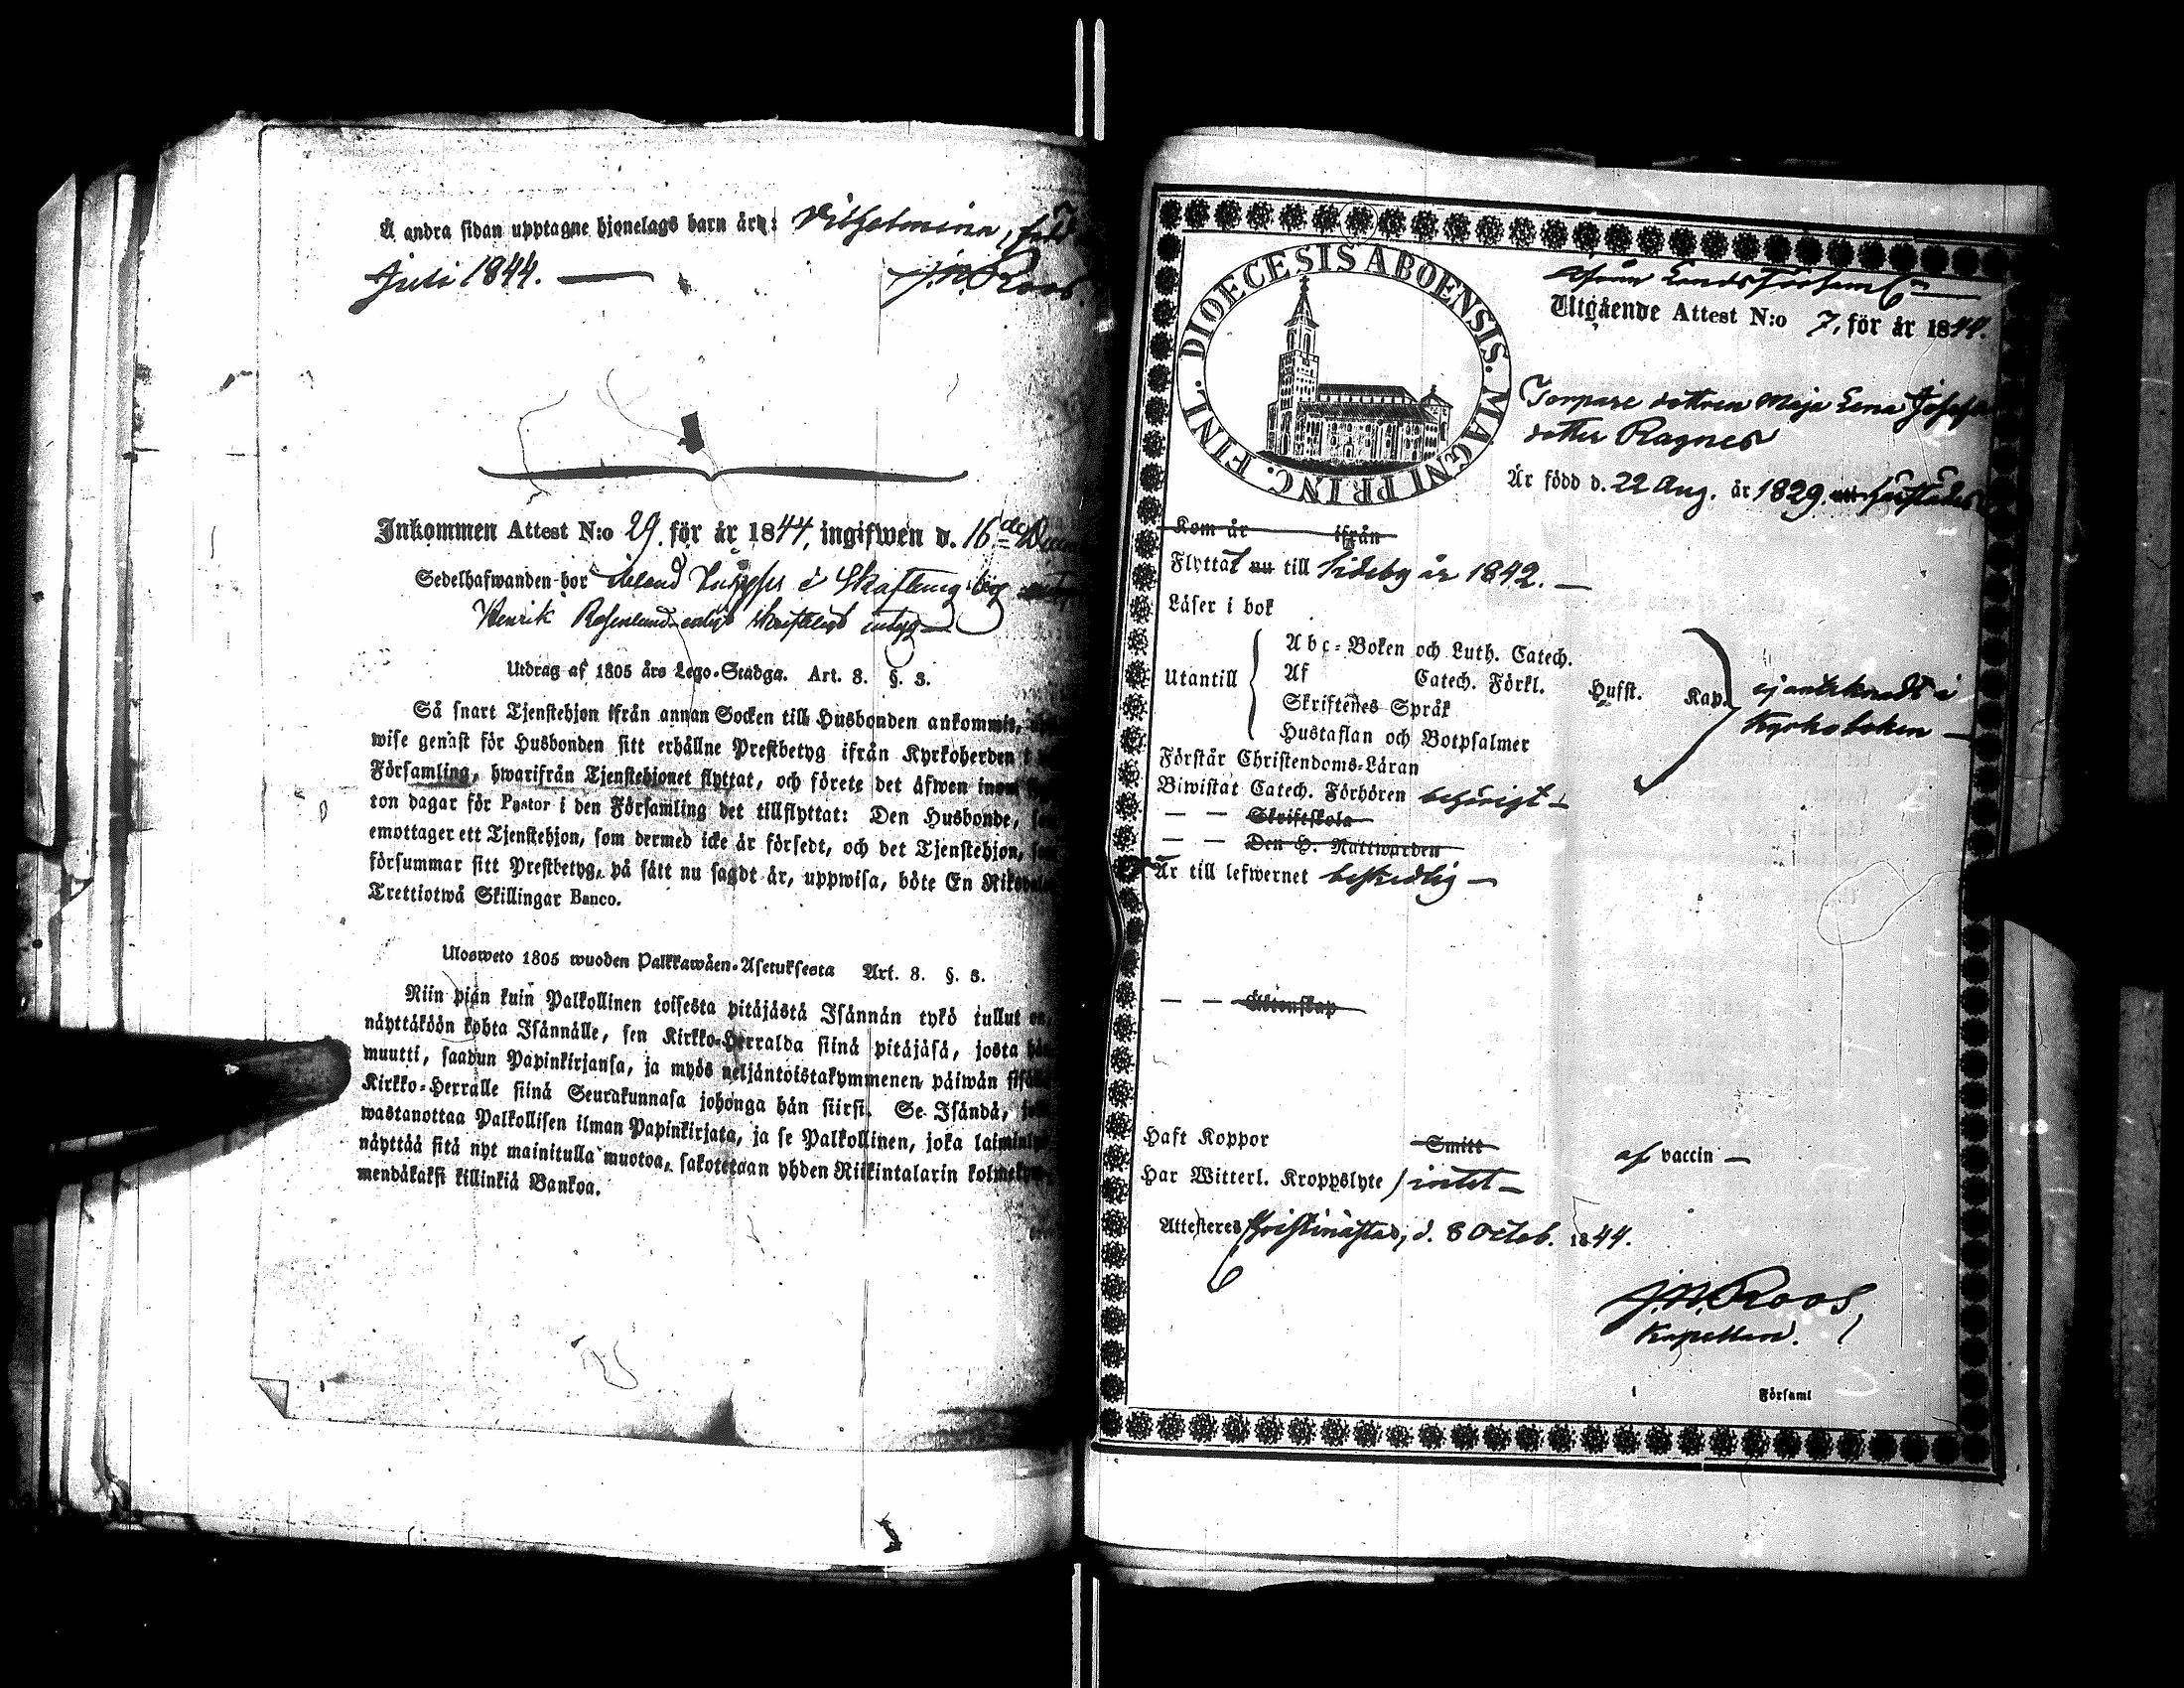 Å andra sidan upptagne hjonelags barn äro: Vilhelmina, född
Juli 1844. — J.N. Roos.
Inkommen Attest N:o 29. för år 1844, ingifwen d. 16de Decem
Sedelhafwanden bor i Skaftung by
Henrik Rosenlund enligt skriftligt intyg —
Utdrag af 1805 års Lego-Stadga. Art. 8. §. 3.
Så snart Tjenstehjon ifrån annan Socken till Husbonden ankommit,
wise genast för Husbonden sitt erhållne Prestbetyg ifrån Kyrkoherden i
Församling, hwarifrån Tjenstehjonet flyttat, och förete det äfwen inom
ton dagar för Pastor i den Församling det tillflyttat: Den Husbonde,
emottager ett Tjenstehjon, som dermed icke är försedt, och det Tjenstehjon,
försummar sitt Prestbetyg, på sätt nu sagdt är, uppwisa, böte En Riksdaler
Trettiotwå Skillingar Banco.
Ulosweto 1805 wuoden Palkkawäen-Asetuksesta Art. 8. §. 3.
Niin pjän kuin Palkollinen toisesta pitäjästä Isännän tykö tullut on,
näyttäköön kohta Isännälle, sen Kirkko-Herralda siinä pitäjäsä, josta hän
muutti, saadun Papinkirjansa, ja myös neljäntoistakymmenen päiwän sisällä
Kirkko-Herralle siinä Seurakunnasa johonga hän siirsi. Se Isändä, joka
wastanottaa Palkollisen ilman Papinkirjata, ja se Palkollinen, joka laiminlyö
näyttää sitä nyt mainitulla muotoa, sakotetaan yhden Riikintalarin kolmekym-
mendäkaksi killinkiä Bankoa.
DIOECESIS ABOENSIS. MAGNI PRINC. FINL.
Landsförsaml
Utgående Attest N:o 7, för år 1844.
Torpare dottren Maja Lena Josefs
dotter Ragnes
Är född d. 22 Aug. år 1829. härstädes
Kom år ifrån
Flyttat nu till Sideby år 1842. —
Läser i bok
Utantill
Abc-Boken och Luth. Catech.
Af Catech. Förkl. Husst. Kap.
Skriftenes Språk
Hustaflan och Botpsalmer
ej antecknadt i
Kyrkoboken —
Förstår Christendoms-Läran
Biwistat Catech. Förhören behörigt —
— — Skriftskola
— — Den H. Nattwarden
Är till lefwernet beskedlig —
— — Äktenskap
Haft Koppor Smitt af vaccin —
Har Witterl. Kroppslyte intet —
Attesteres Christinestad, d. 8 Octob. 1844.
J.N. Roos,
Kapellan.
Församl